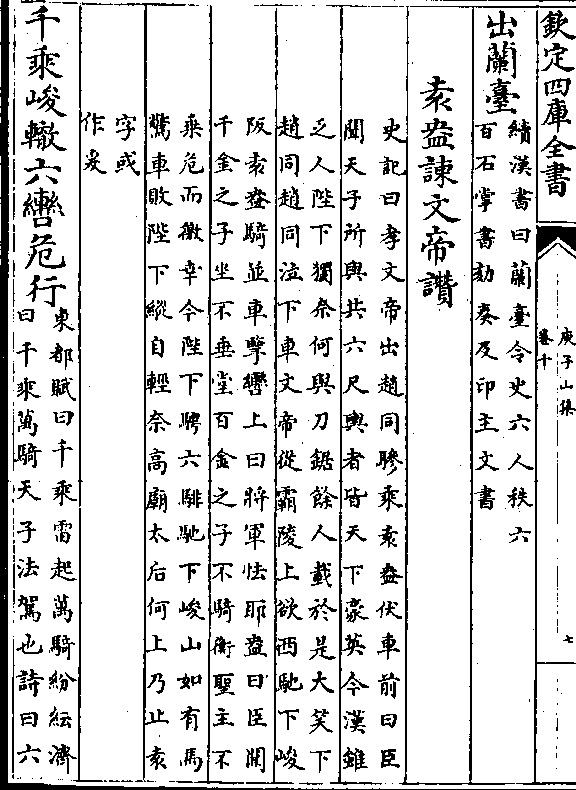 欽定四庫全書
庾子山集
卷十
七
出蘭臺
續漢書曰蘭臺令史六人秩六
百石掌書劾奏及印主文書
袁盎諫文帝讚
史記曰孝文帝出趙同驂乘袁盎伏車前曰臣
聞天子所與共六尺輿者皆天下豪英今漢雖
乏人陛下獨奈何與刀鋸餘人載於是大笑下
趙同趙同泣下車文帝從霸陵上欲西馳下峻
阪袁盎騎並車擥轡上曰將軍怯耶盎曰臣聞
千金之子坐不垂堂百金之子不騎衡聖主不
乘危而徼幸今陛下騁六騑馳下峻山如有馬
驚車敗陛下縱自輕奈高廟太后何上乃止袁
字或
作爰
千乘峻轍六轡危行
東都賦曰千乘雷起萬騎紛紜濟
曰千乘萬騎天子法駕也詩曰六